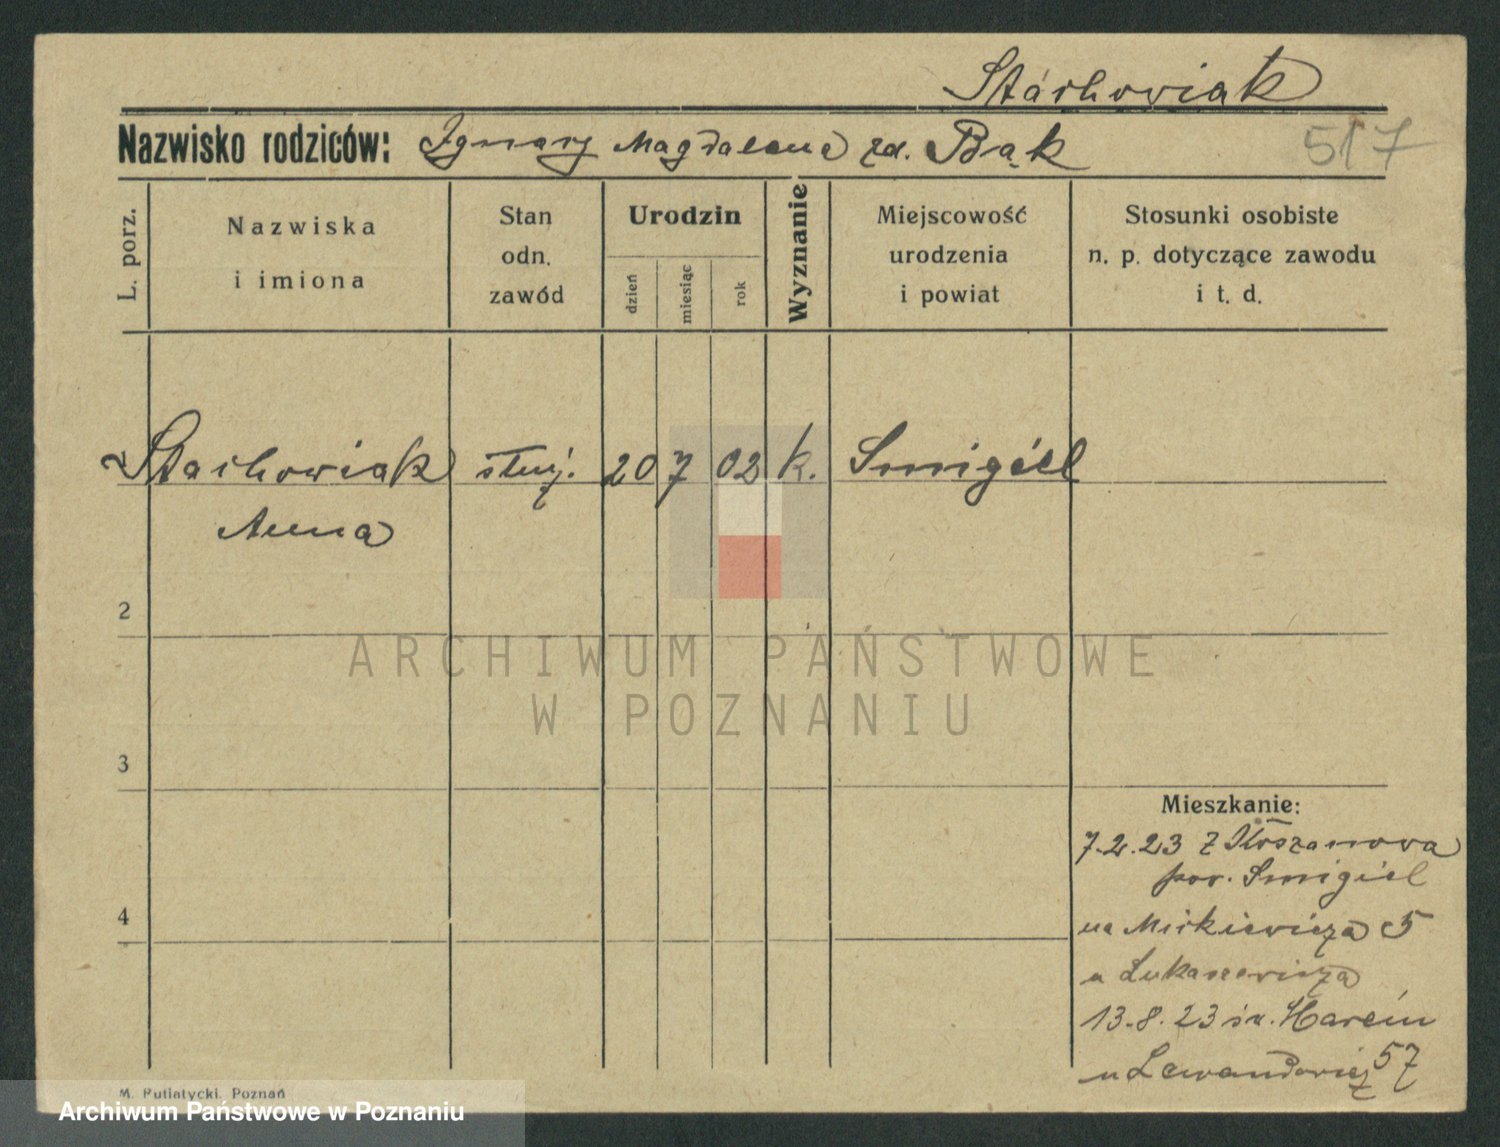 Stachowiak
Nazwisko rodziców: Ignacy Magdalena zd. Bąk
517
L. porz.
Nazwiska
i imiona
Stan
odn.
zawód
Urodzin
dzień
miesiąc
rok
Wyznanie
Miejscowość
urodzenia
i powiat
Stosunki osobiste
n. p. dotyczące zawodu
i t. d.
Stachowiak służ. 20 7 02 k. Smigiel
Anna
2
3
4
Mieszkanie:
7.2.23 z
pow. Smigiel
na Mickiewicza 5
u Łukaszewicza
13.8.23 św. Marcin
u 57
M. Putiatycki, Poznań
ARCHIWUM PAŃSTWOWE
W POZNANIU
Archiwum Państwowe w Poznaniu